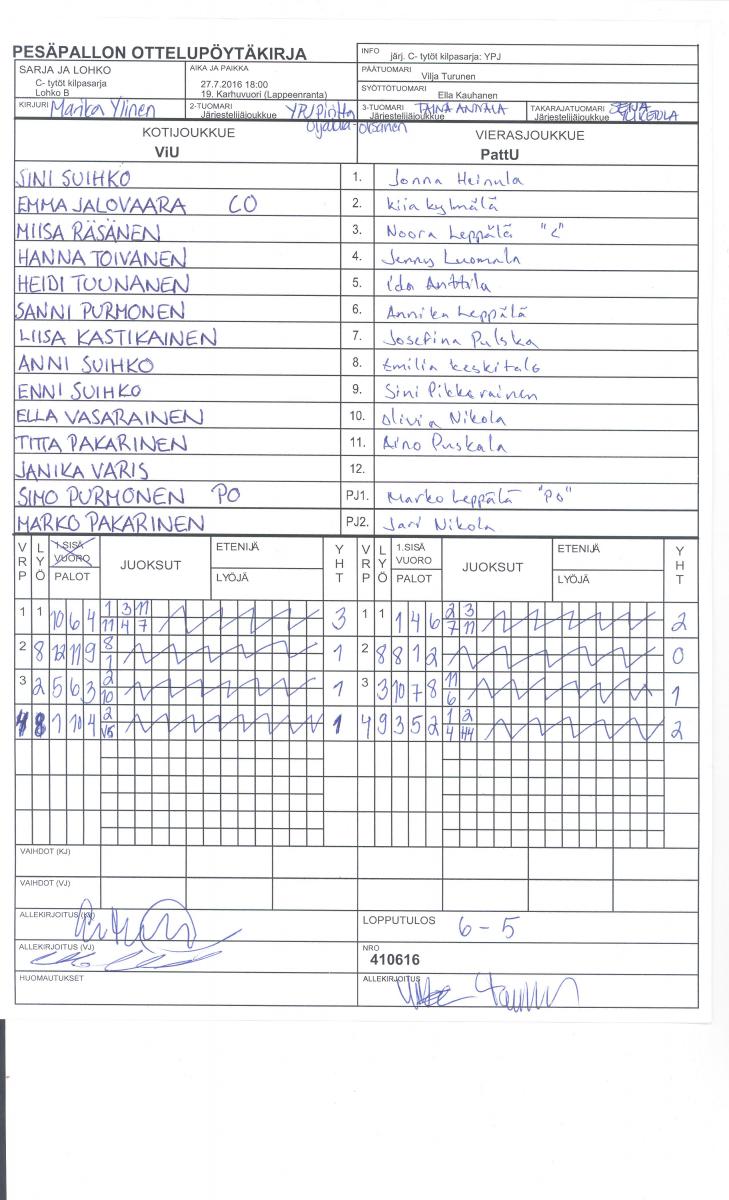 PESÄPALLON OTTELUPÖYTÄKIRJA
INFO järj. C- tytöt kilpasarja: YPJ
SARJA JA LOHKO
C- tytöt kilpasarja
Lohko B
AIKA JA PAIKKA
27.7.2016 18:00
19. Karhuvuori (Lappeenranta)
PÄÄTUOMARI
Vilja Turunen
SYÖTTÖTUOMARI
Ella Kauhanen
KIRJURI Marika Ylinen
2-TUOMARI YPJ/Piritta
Järjestelijäjoukkue
3-TUOMARI TAINA ANNALA
Järjestelijäjoukkue
TAKARAJATUOMARI SEIJA
Järjestelijäjoukkue
KOTIJOUKKUE
ViU
VIERASJOUKKUE
PattU
SINI SUIHKO 1. Jonna Heinula
EMMA JALOVAARA CO 2. Kiia Kylmälä
MIISA RÄSÄNEN 3. Noora Leppälä "C"
HANNA TOIVANEN 4. Jenny Luomala
HEIDI TUUNANEN 5. Ida Anttila
SANNI PURMONEN 6. Annika Leppälä
LIISA KASTIKAINEN 7. Josefina Pulska
ANNI SUIHKO 8. Emilia Keskitalo
ENNI SUIHKO 9. Sini Pikkarainen
ELLA VASARAINEN 10. Olivia Nikola
TITTA PAKARINEN 11. Aino Puskala
JANIKA VARIS 12.
SIMO PURMONEN PO PJ1. Marko Leppälä "PO"
MARKO PAKARINEN PJ2. Jari Nikola
VRP LYÖ 1.SISÄ VUORO PALOT JUOKSUT ETENIJÄ LYÖJÄ YHT VRP LYÖ 1.SISÄ VUORO PALOT JUOKSUT ETENIJÄ LYÖJÄ YHT
1 1 10 6 4 1 3 11 3 1 1 1 4 6 2 3 2
11 4 7 7 11
2 8 12 11 9 8 1 2 8 8 1 2 0
1
3 2 5 6 3 2 1 3 3 10 7 8 11 1
10 6
4 8 1 10 4 2 1 4 9 3 5 2 1 2 2
V5 4
VAIHDOT (KJ)
VAIHDOT (VJ)
ALLEKIRJOITUS (KJ)
LOPPUTULOS 6 - 5
ALLEKIRJOITUS (VJ)
NRO
410616
HUOMAUTUKSET
ALLEKIRJOITUS